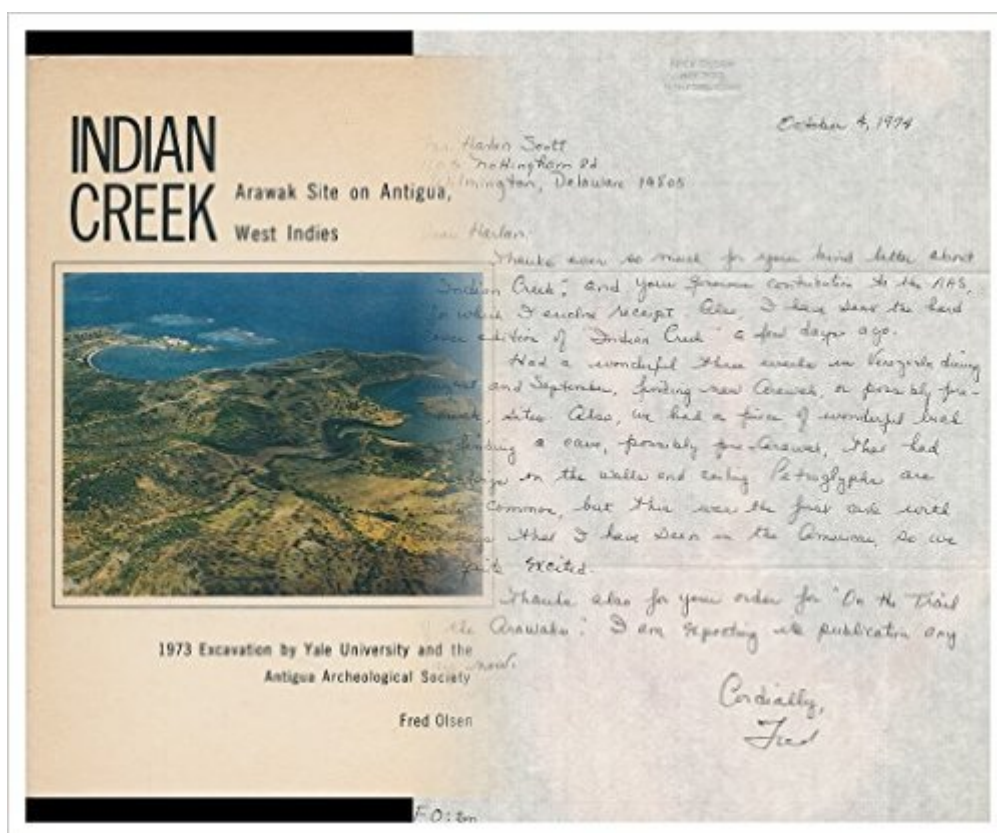 INDIAN
CREEK
Arawak Site on Antigua,
West Indies
1973 Excavation by Yale University and the
Antigua Archeological Society
Fred Olsen
October 4, 1974
Harlan Scott
Nottingham Rd
Wilmington, Delaware 19805
Dear Harlan:
Thanks ever so much for your kind letter about
"Indian Creek", and your generous contribution to the AAS,
for which I enclose receipt. Also, I have sent the hard
cover edition of "Indian Creek" a few days ago.
Had a wonderful three weeks in Venezuela during
August and September, finding new Arawak, or possibly pre-
Arawak, sites. Also, we had a piece of wonderful luck
finding a cave, possibly pre-Arawak, that had
on the walls and ceiling. Petroglyphs are
common, but this was the first cave with
that I have seen in the so we
quite excited.
Thanks also for your order for "On the Trail
of the Arawaks." I am expecting its publication any
now.
Cordially,
Fred
FO: